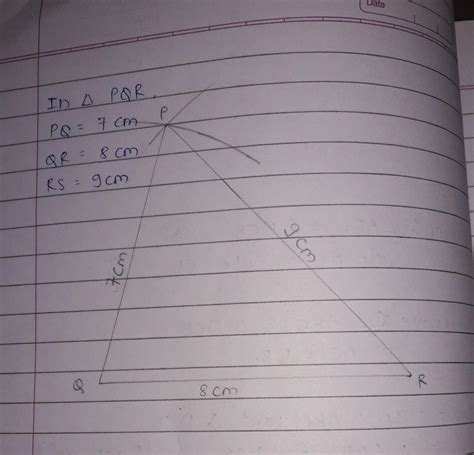 Date
In △ PQR.
PQ = 7 cm
QR = 8 cm
RS = 9cm
P
7cm
9cm
Q
8cm
R